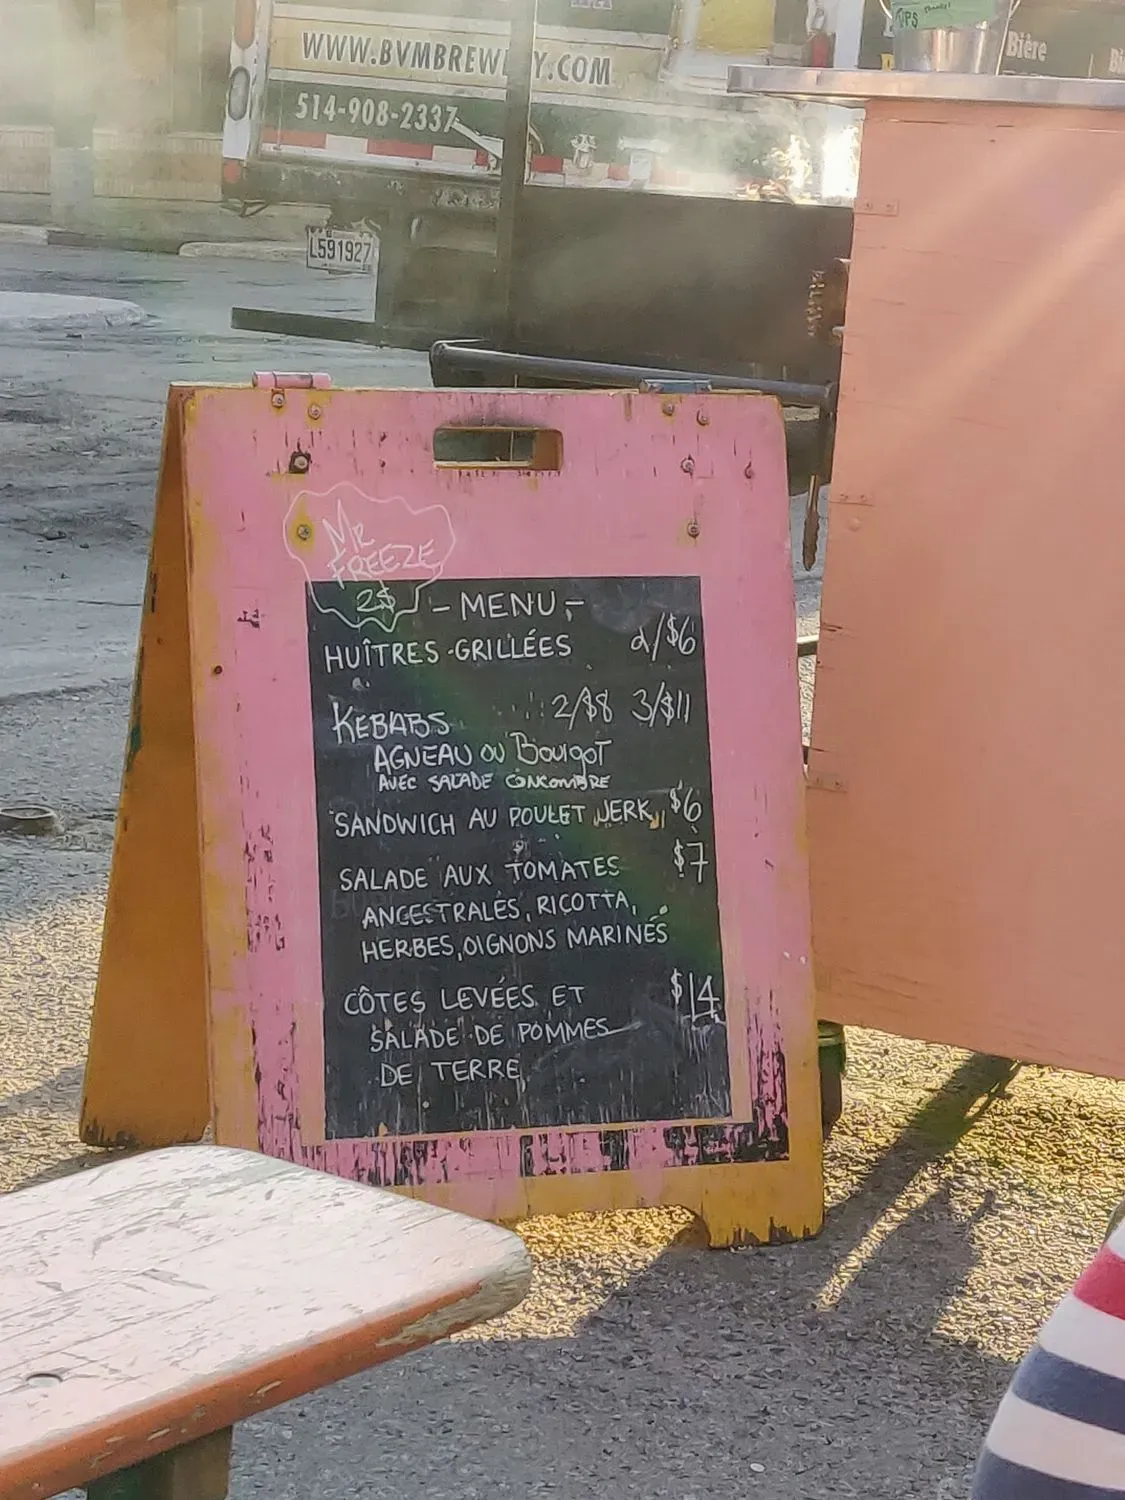 UPS
Thanks!
WWW.BVMBREWERY.COM
514-908-2337
Bière
L591927
MR
FREEZE
2$
- MENU -
HUÎTRES GRILLÉES 2/$6
KEBABS 2/$8 3/$11
AGNEAU OU Bourgot
AVEC SALADE CONCOMBRE
SANDWICH AU POULET JERK $6
SALADE AUX TOMATES $7
ANCESTRALES, RICOTTA,
HERBES, OIGNONS MARINÉS
CÔTES LEVÉES ET $14
SALADE DE POMMES
DE TERRE